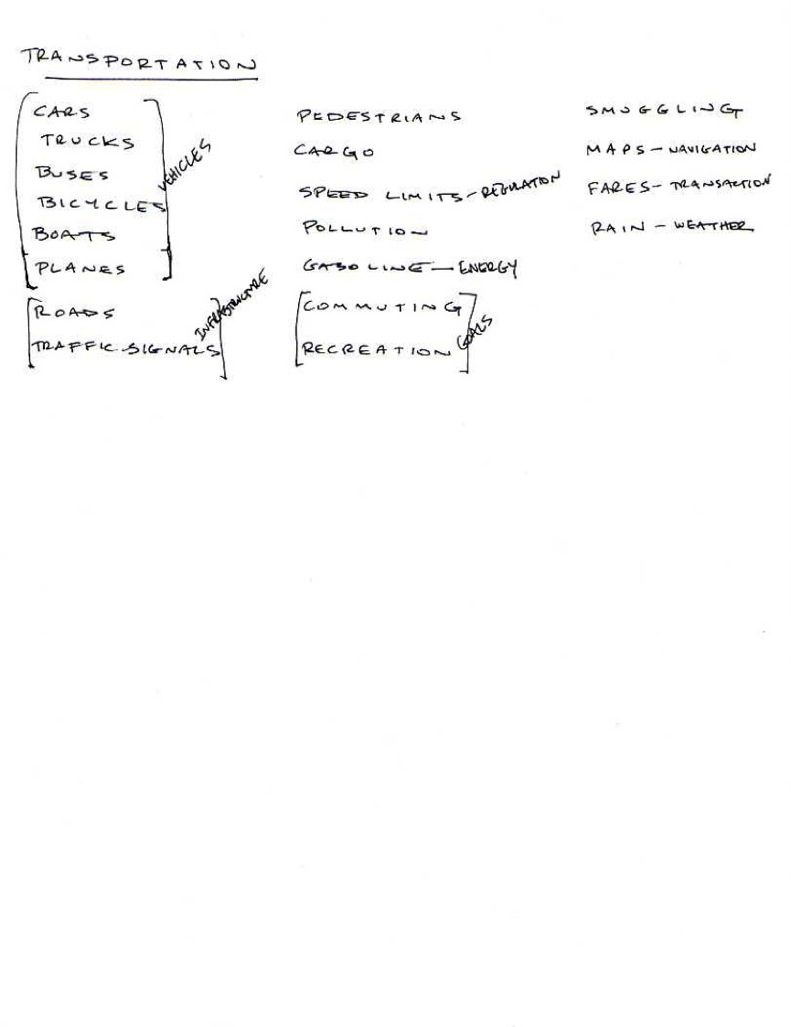 TRANSPORTATION
CARS
TRUCKS
BUSES
BICYCLES
BOATS
PLANES
VEHICLES
ROADS
TRAFFIC SIGNALS
INFRASTRUCTURE
PEDESTRIANS
CARGO
SPEED LIMITS - REGULATION
POLLUTION
GASOLINE - ENERGY
COMMUTING
RECREATION
GOALS
SMUGGLING
MAPS - NAVIGATION
FARES - TRANSACTION
RAIN - WEATHER